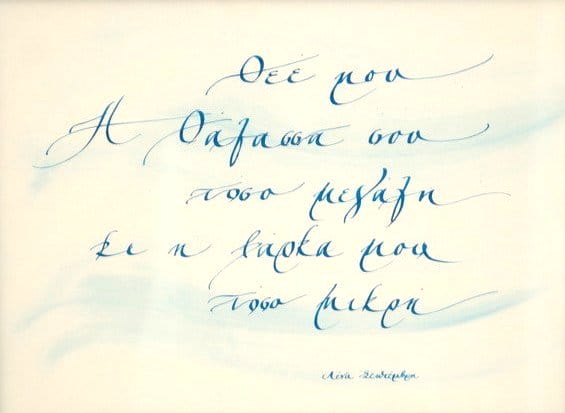 Θεέ μου
Η θάλασσα σου
τόσο μεγάλη
κι η βάρκα μου
τόσο μικρή
Λένα